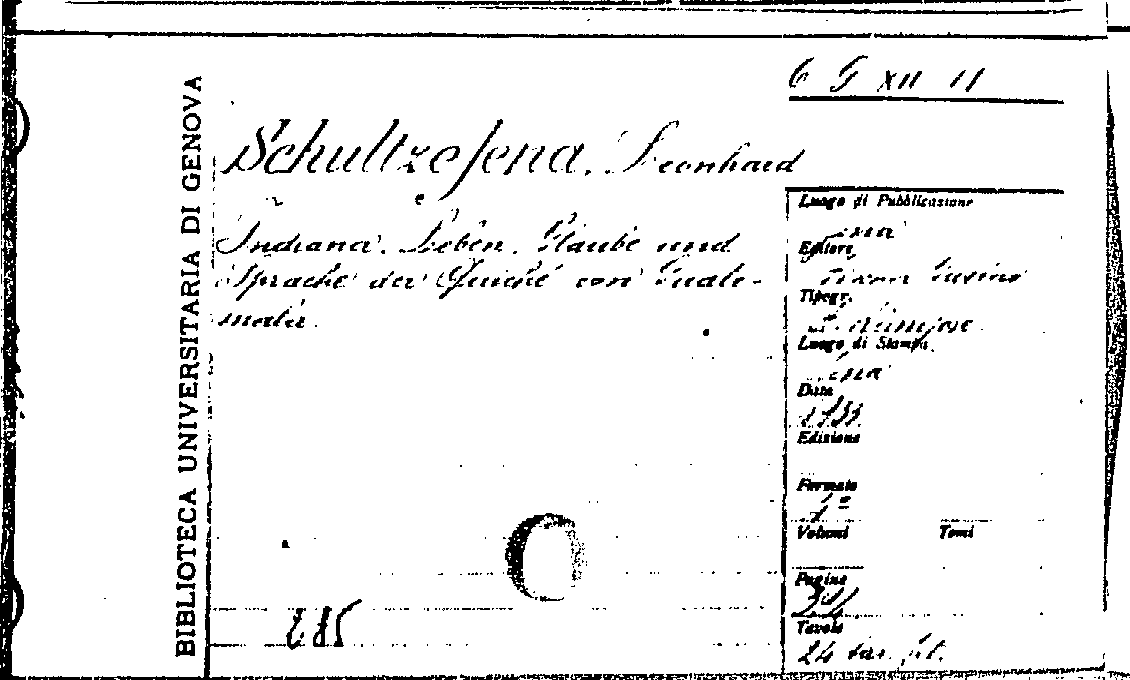 BIBLIOTECA UNIVERSITARIA DI GENOVA
6 G XII 11
Schultze Jena, Leonhard
Indiana. Leben, Glaube und
Sprache der Quiché von Guate-
mala.
Luogo di Pubblicazione
Jena
Editore
Tipogr.
Luogo di Stampa
Jena
Data
1933
Edizione
Formato
Volumi Tomi
Pagine
Tavole
24 tav.